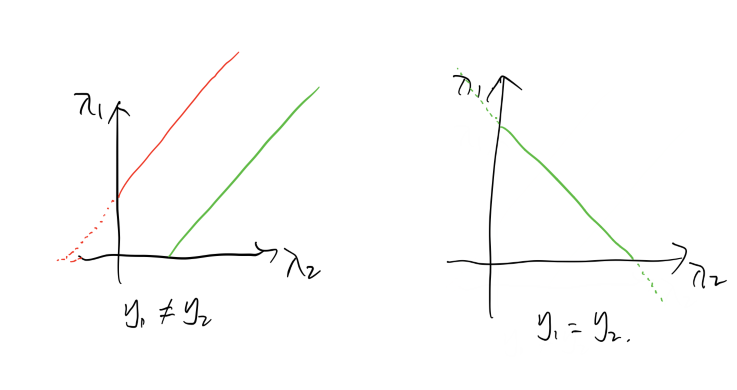 λ₁
λ₂
y₁ ≠ y₂
λ₁
λ₂
y₁ = y₂.